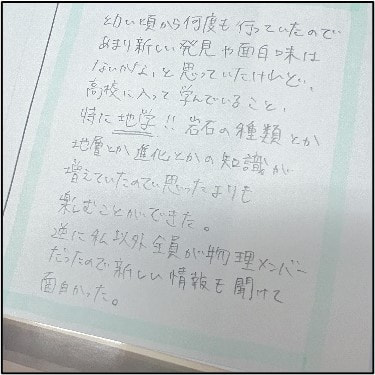 幼い頃から何度も行っていたので
あまり新しい発見や面白味は
ないかなぁと思っていたけれど、
高校に入って学んでいること、
特に地学!! 岩石の種類とか
地層とか進化とかの知識が
増えていたので思ったよりも
楽しむことができた。
逆に私以外全員が物理メンバー
だったので新しい情報も聞けて
面白かった。